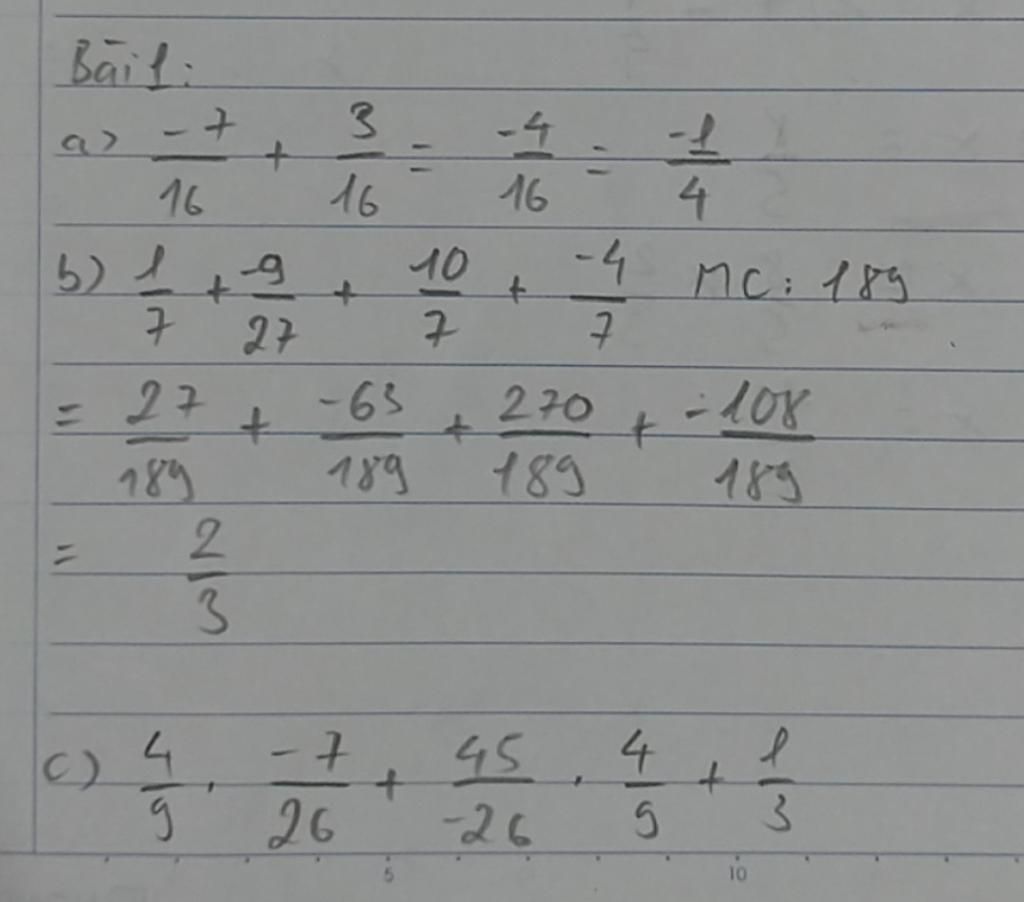 Bài 1:
a) -7/16 + 3/16 = -4/16 = -1/4
b) 1/7 + -9/27 + 10/7 + -4/7 MC: 189
= 27/189 + -63/189 + 270/189 + -108/189
= 2/3
c) 4/9 . -7/26 + 45/-26 . 4/9 + 1/3
5 10